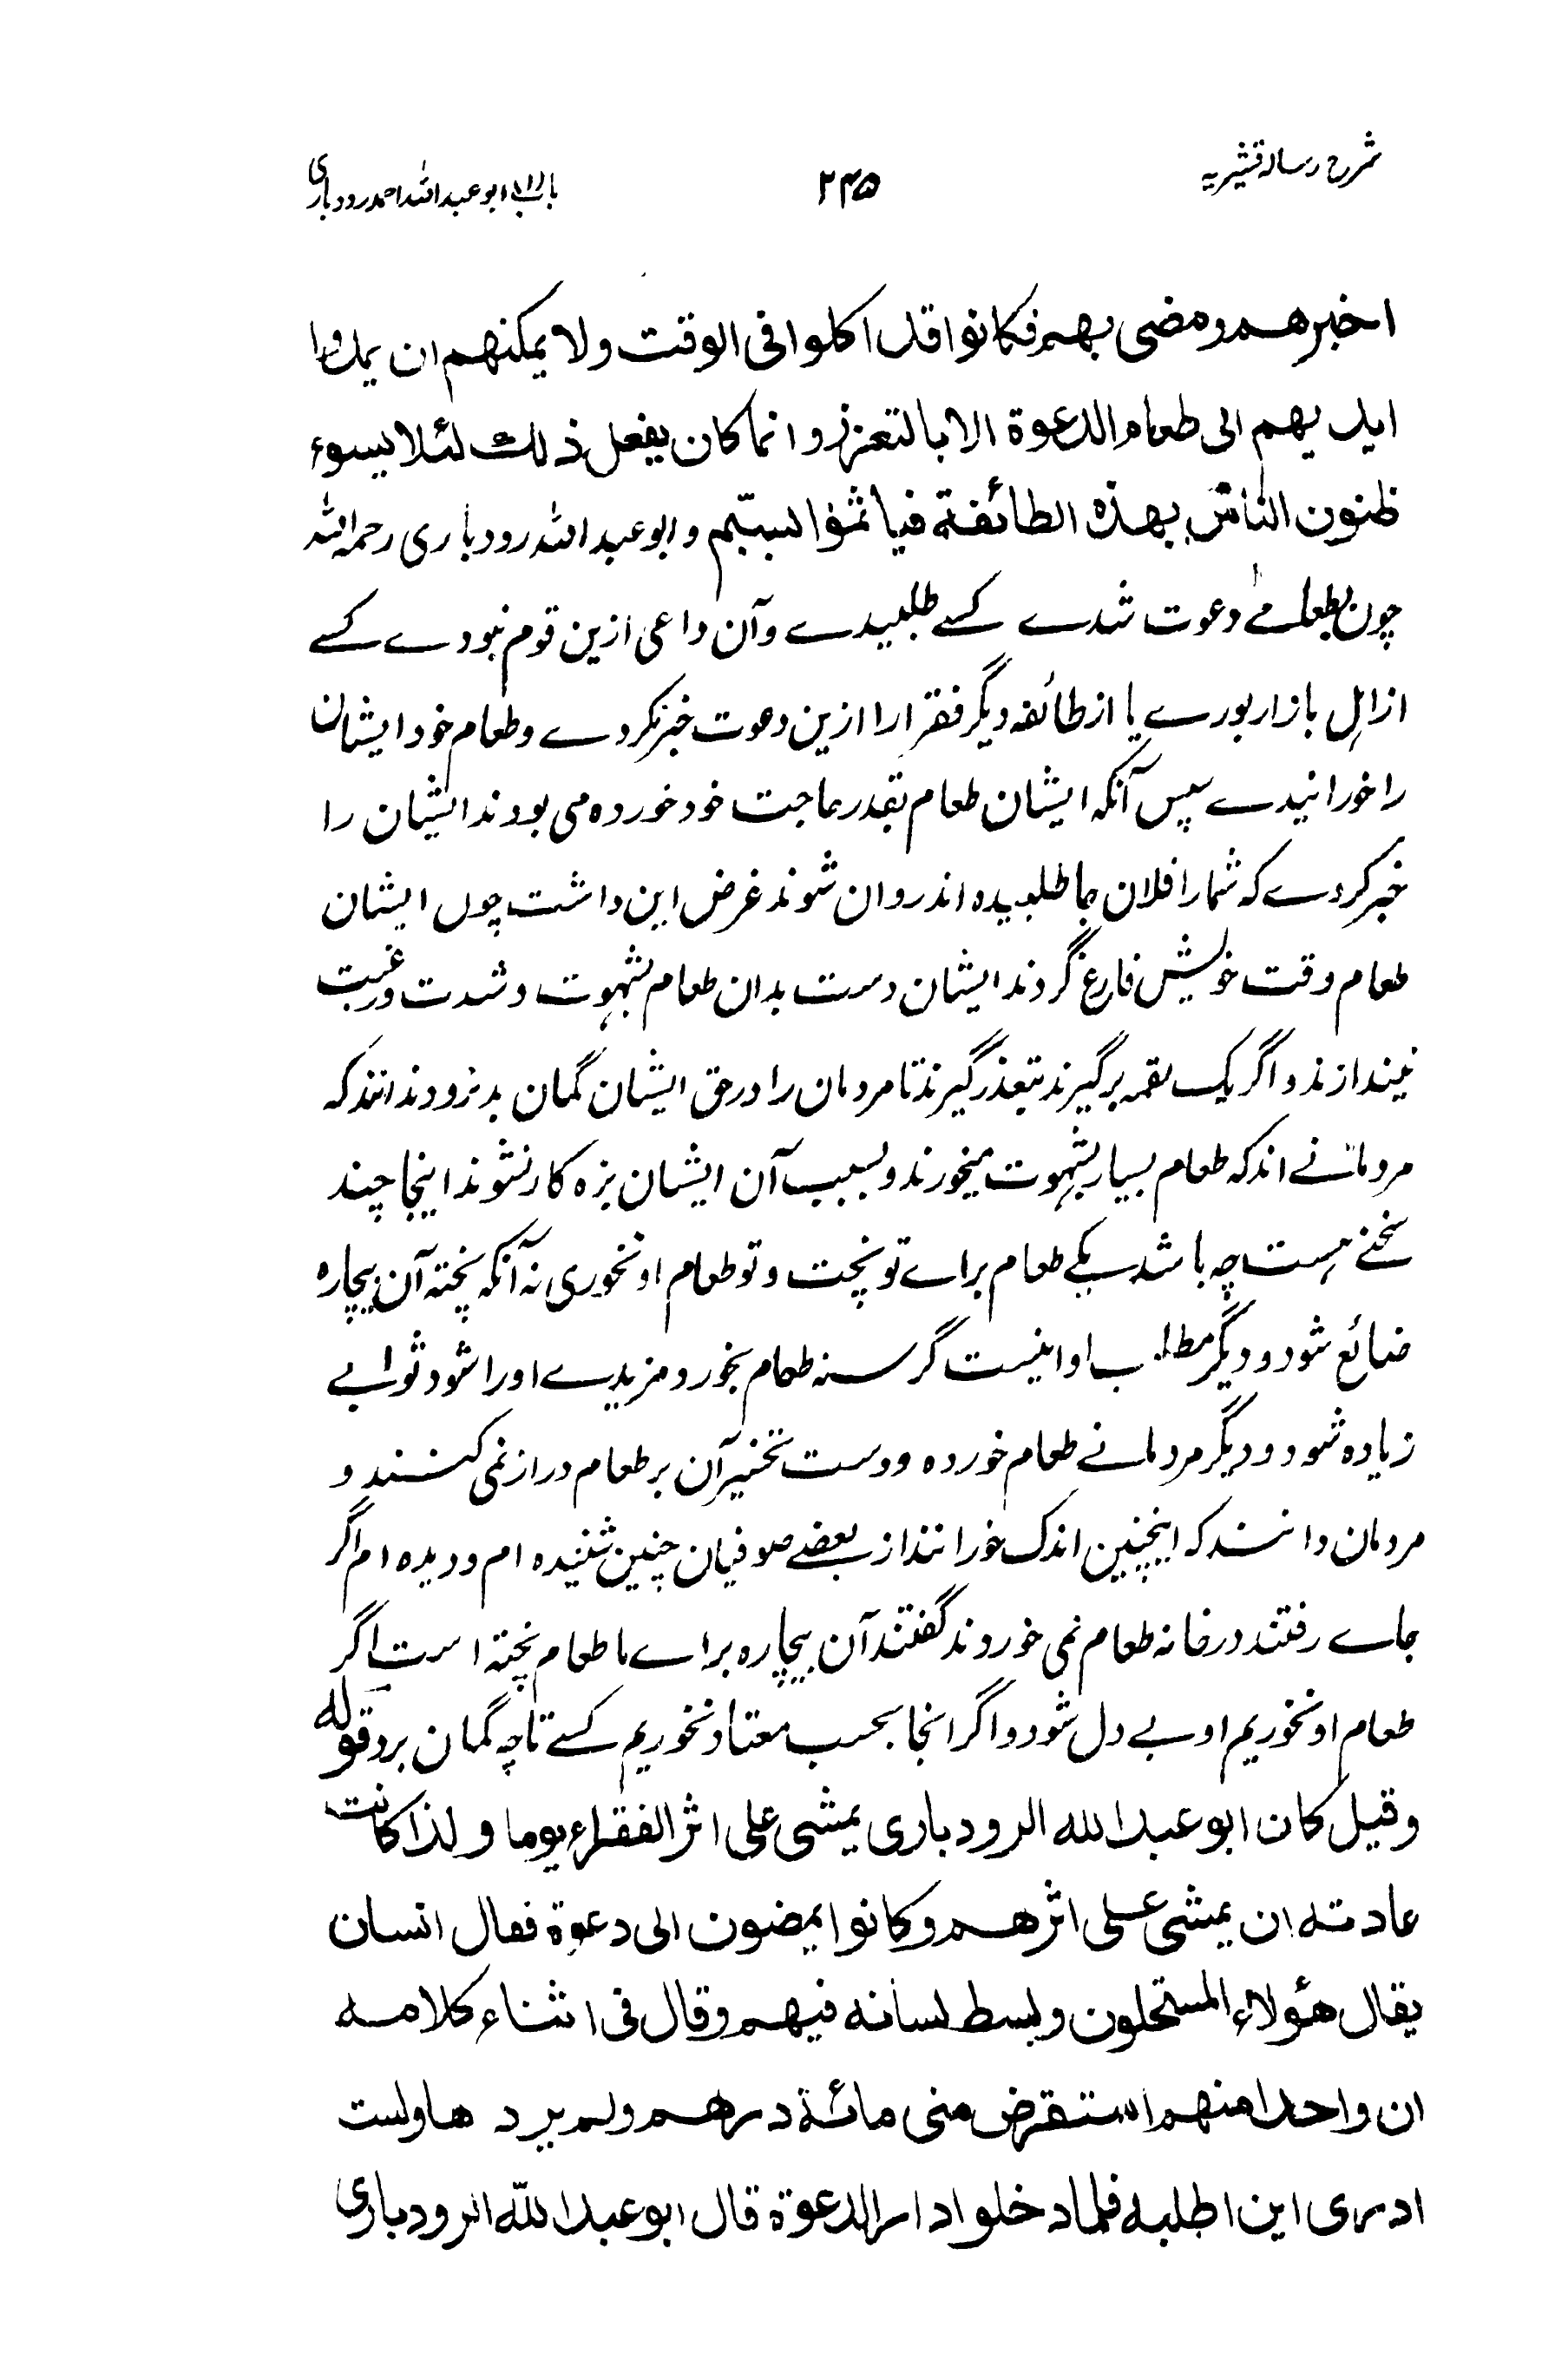 شرح رسالہ قشیریہ
۲۴۵
ابوعبداللہ احمد رودباری
اخبرهم ومضی بهم فکانوا قد اکلوا فی الوقت ولا یمکنهم ان یمدوا
ایدیهم الی طعام الدعوة الا بالتعزز وانما کان یفعل ذلک لئلا یسوء
ظنون الناس بهذه الطائفة فیاثموا لسببهم و ابوعبداللہ رودباری رحمہ اللہ
چون بطعامے دعوت شدے کسے طلبیدے و آن داعی ازین قوم نبودے کسے
از اہل بازار بودے یا از طائفہ دیگر فقرا را ازین دعوت خبر نکردے و طعام خود ایشان
را خورانیدے سپس آنکہ ایشان طعام بقدر حاجت خود خوردہ می بودند ایشان را
خبر کردے کہ شما را فلان جا طلبیدہ اند روان شوند غرض این داشت چوں ایشان
طعام وقت خویش فارغ گردند ایشان دست بدان طعام بشہوت و شدت و رغبت
نیندازند و اگر یک لقمہ برگیرند بتعذر گیرند تا مردمان را در حق ایشان گمان بد نرود ندانند کہ
مردمانے اند کہ طعام بسیار بشہوت میخورند و بسبب آن ایشان بزہ کار نشوند اینجا چند
سخنے ہست چہ باشد یکے طعام براے تو پخت و تو طعام او نخوری نہ آنکہ پختہ آن بیچارہ
ضائع شود و دیگر مطلب او اینست گرسنہ طعام بخورد و مزیدے او را شود ثوابے
زیادہ شود و دیگر مردمانے طعام خوردہ و دست آن بر طعام دراز نمی کنند و
مردمان دانند کہ اینچنین اندک خورانند از بعضے صوفیان چنین شنیدہ ام و دیدہ ام اگر
جاے رفتند در خانہ طعام نمی خوردند گفتند آن بیچارہ براے ما طعام پختہ است اگر
طعام او نخوریم او بے دل شود و اگر انجا بحسب معتاد نخوریم کسے تا چہ گمان برد قوله
وقیل کان ابوعبدالله الرودباری یمشی علی اثر الفقراء یوما و لذا کانت
عادته ان یمشی علی اثرهم وکانوا یمضون الی دعوة فقال انسان
یقال هؤلاء المستحلون وبسط لسانه فیهم وقال فی اثناء کلامه
ان واحدا منهم استقرض منی مائة درهم ولم یرد ها ولست
ادری این اطلبه فلما دخلوا دار الدعوة قال ابوعبدالله الرودباری